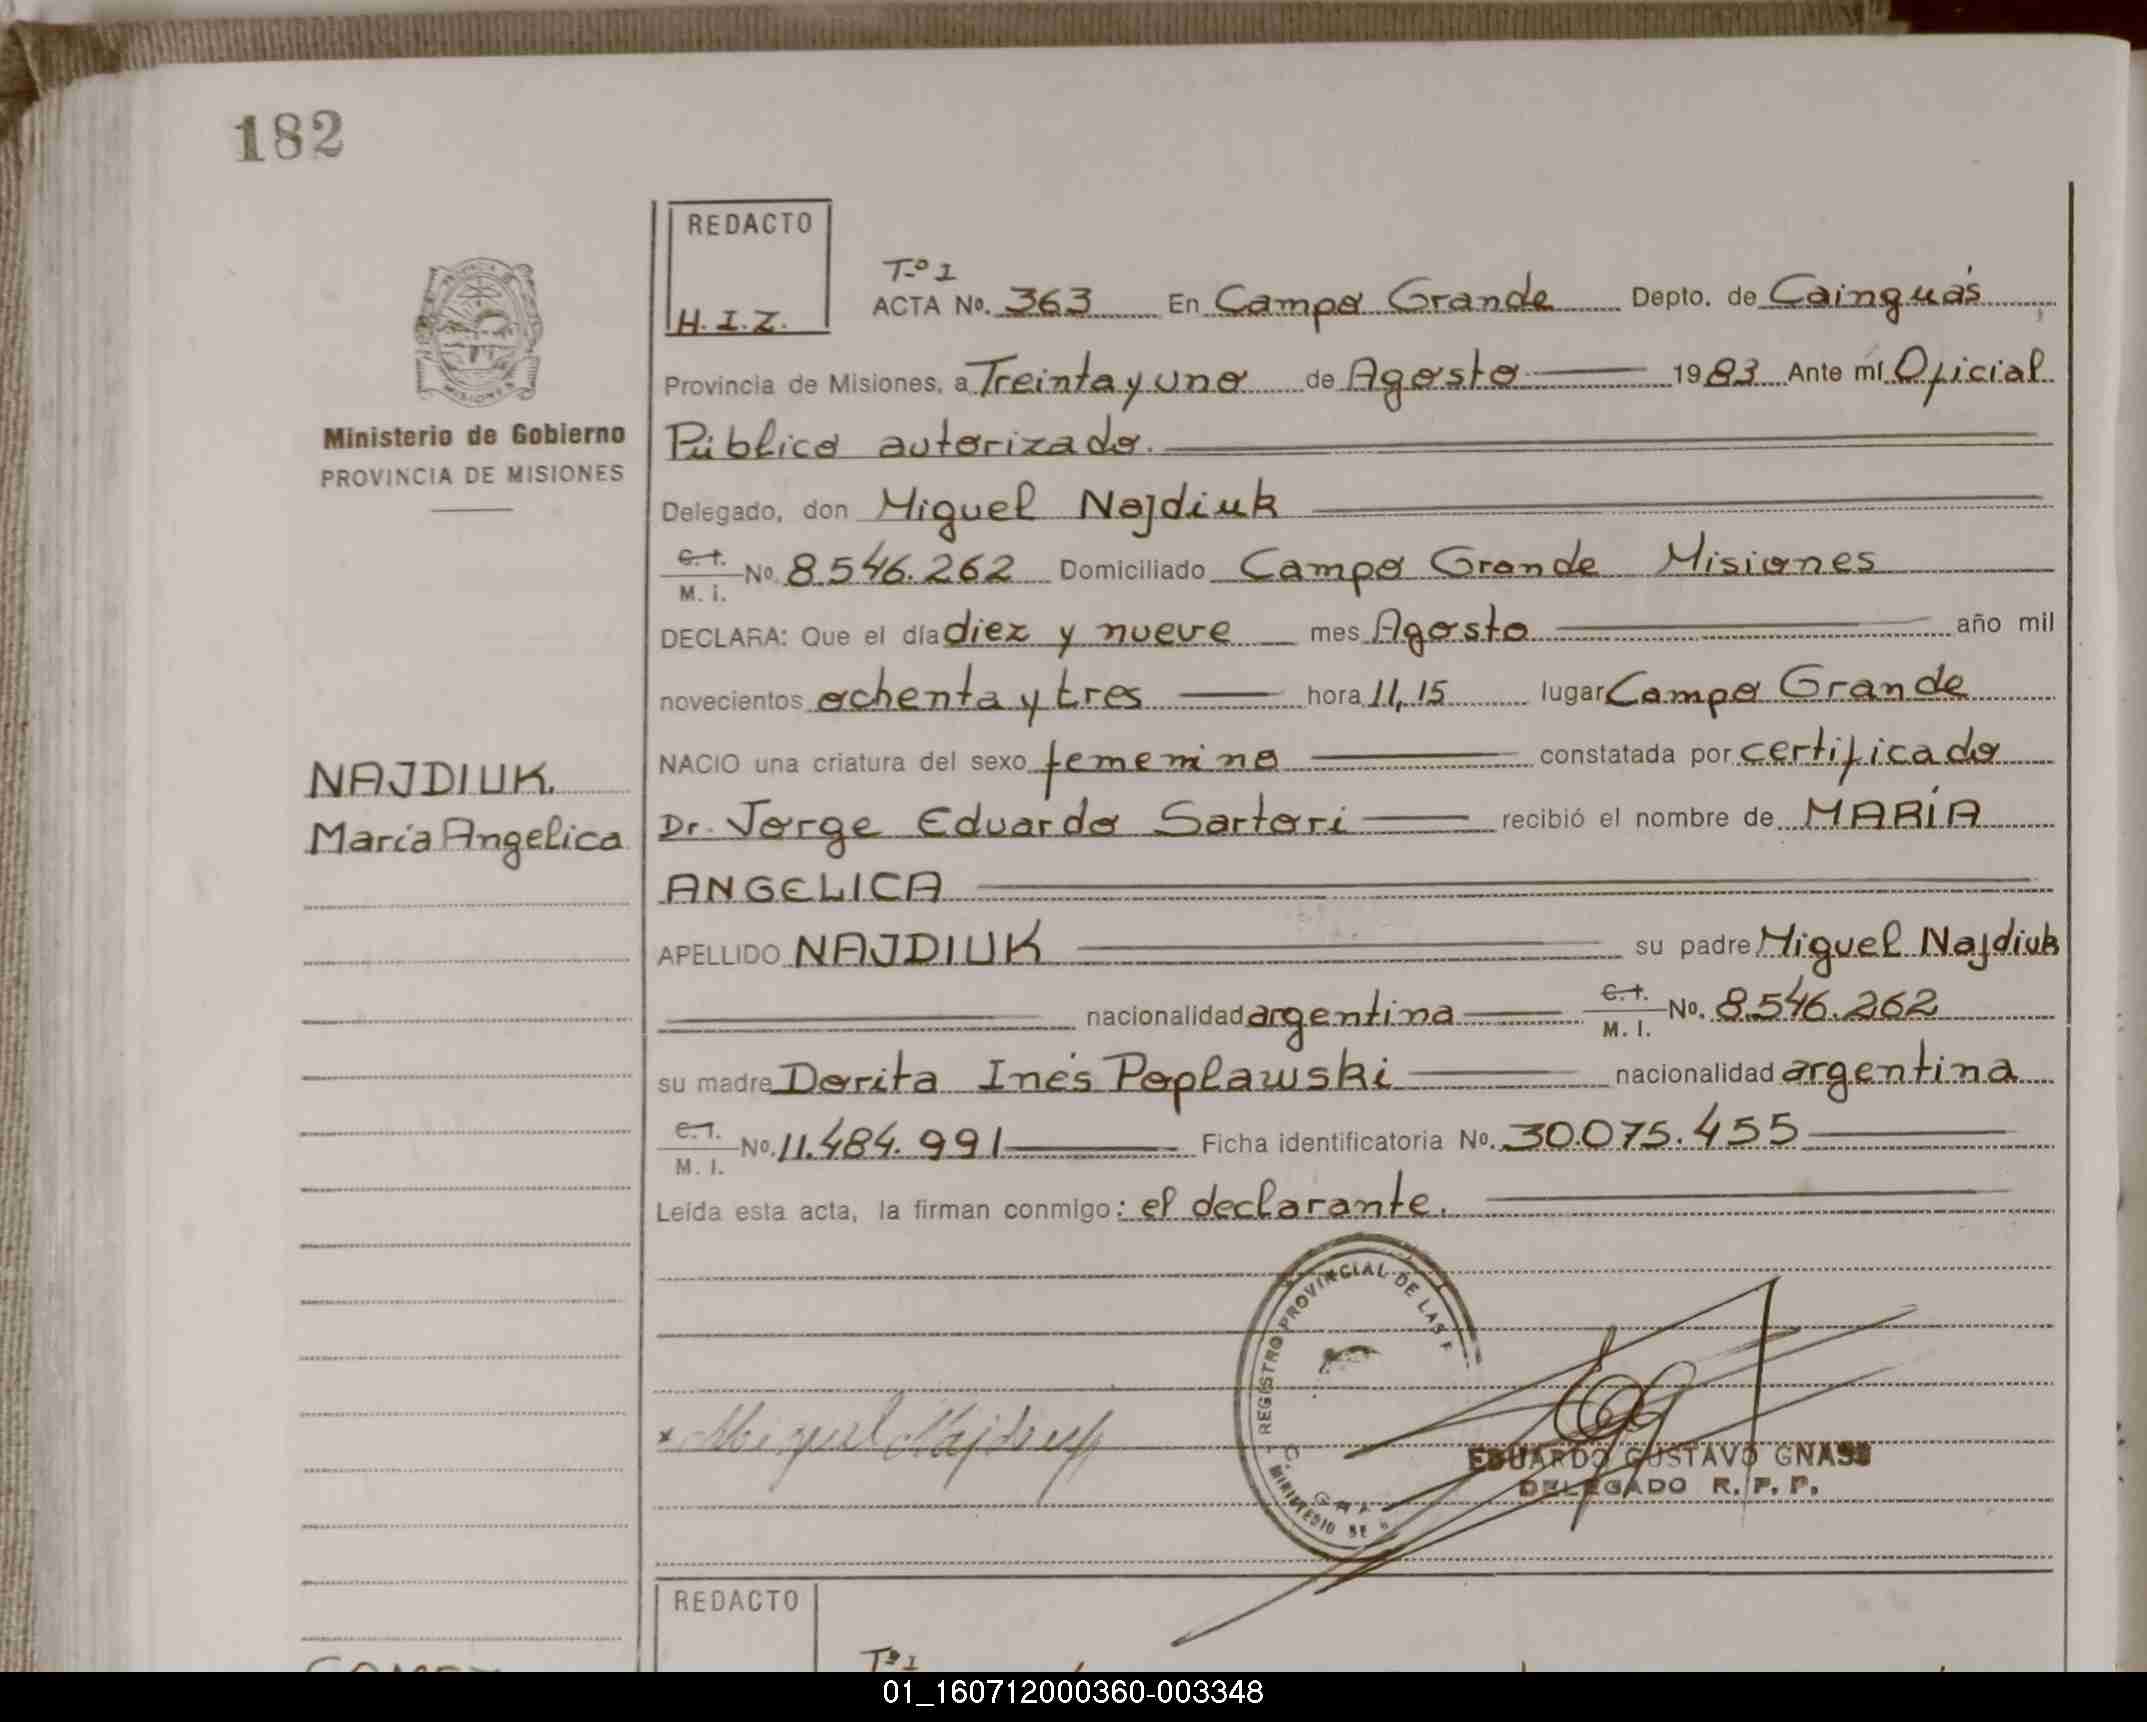 182
REDACTO
H.I.Z.
Tº 1
ACTA Nº. 363 En Campo Grande Depto. de Cainguás
Provincia de Misiones, a Treinta y uno de Agosto 1983 Ante mí Oficial
Público autorizado.
Ministerio de Gobierno
PROVINCIA DE MISIONES
MISIONES
Delegado, don Miguel Najdiuk
C.I.
M. i. Nº 8.546.262 Domiciliado Campo Grande Misiones
DECLARA: Que el día diez y nueve mes Agosto año mil
novecientos ochenta y tres hora 11,15 lugar Campo Grande
NACIO una criatura del sexo femenino constatada por certificado
NAJDIUK.
María Angelica
Dr. Jorge Eduardo Sartori recibió el nombre de MARÍA
ANGELICA
APELLIDO NAJDIUK su padre Miguel Najdiuk
nacionalidad argentina C.I.
M. I. Nº. 8.546.262
su madre Dorita Inés Poplawski nacionalidad argentina
C.I.
M. I. Nº. 11.484.991 Ficha identificatoria Nº. 30.075.455
Leída esta acta, la firman conmigo: el declarante.
REGISTRO PROVINCIAL DE LAS
x Miguel Najdiuk
EDUARDO GUSTAVO GNASS
DELEGADO R. P. P.
REDACTO
Tº 1
01_160712000360-003348